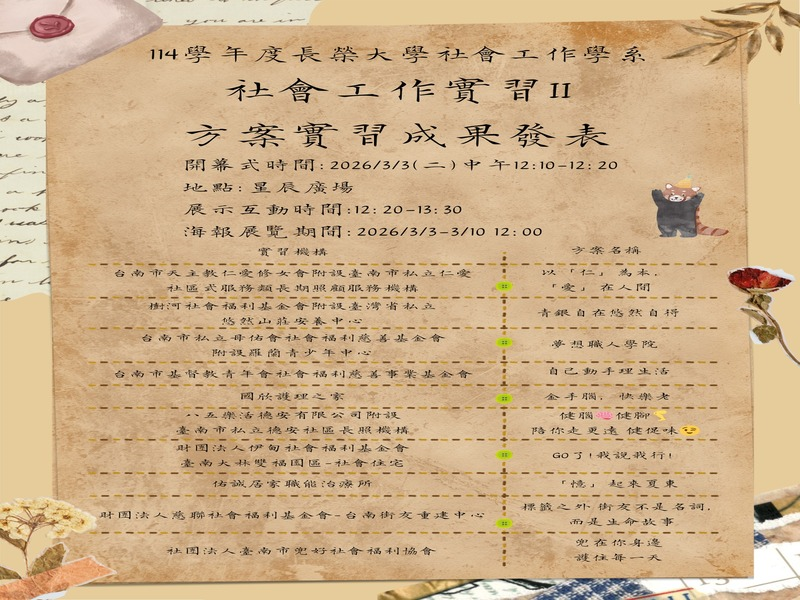 114學年度長榮大學社會工作學系
社會工作實習II
方案實習成果發表
開幕式時間:2026/3/3(二)中午12:10-12:20
地點:星辰廣場
展示互動時間:12:20-13:30
海報展覽期間:2026/3/3-3/10 12:00
實習機構 方案名稱
台南市天主教仁愛修女會附設臺南市私立仁愛
社區式服務類長期照顧服務機構
以「仁」為本，
「愛」在人間
樹河社會福利基金會附設臺灣省私立
悠然山莊安養中心
青銀自在悠然自得
台南市私立母佑會社會福利慈善基金會
附設羅蘭青少年中心
夢想職人學院
台南市基督教青年會社會福利慈善事業基金會
自己動手理生活
國欣護理之家
金手腦，快樂老
八五樂活德安有限公司附設
臺南市私立德安社區長照機構
健腦 健腳
陪你走更遠 健促味
財團法人伊甸社會福利基金會
臺南大林雙福園區-社會住宅
GO了!我說我行!
佑誠居家職能治療所
「憶」起來夏東
財團法人慈聯社會福利基金會-台南街友重建中心
標籤之外 街友不是名詞，
而是生命故事
社團法人臺南市兜好社會福利協會
兜在你身邊
護住每一天